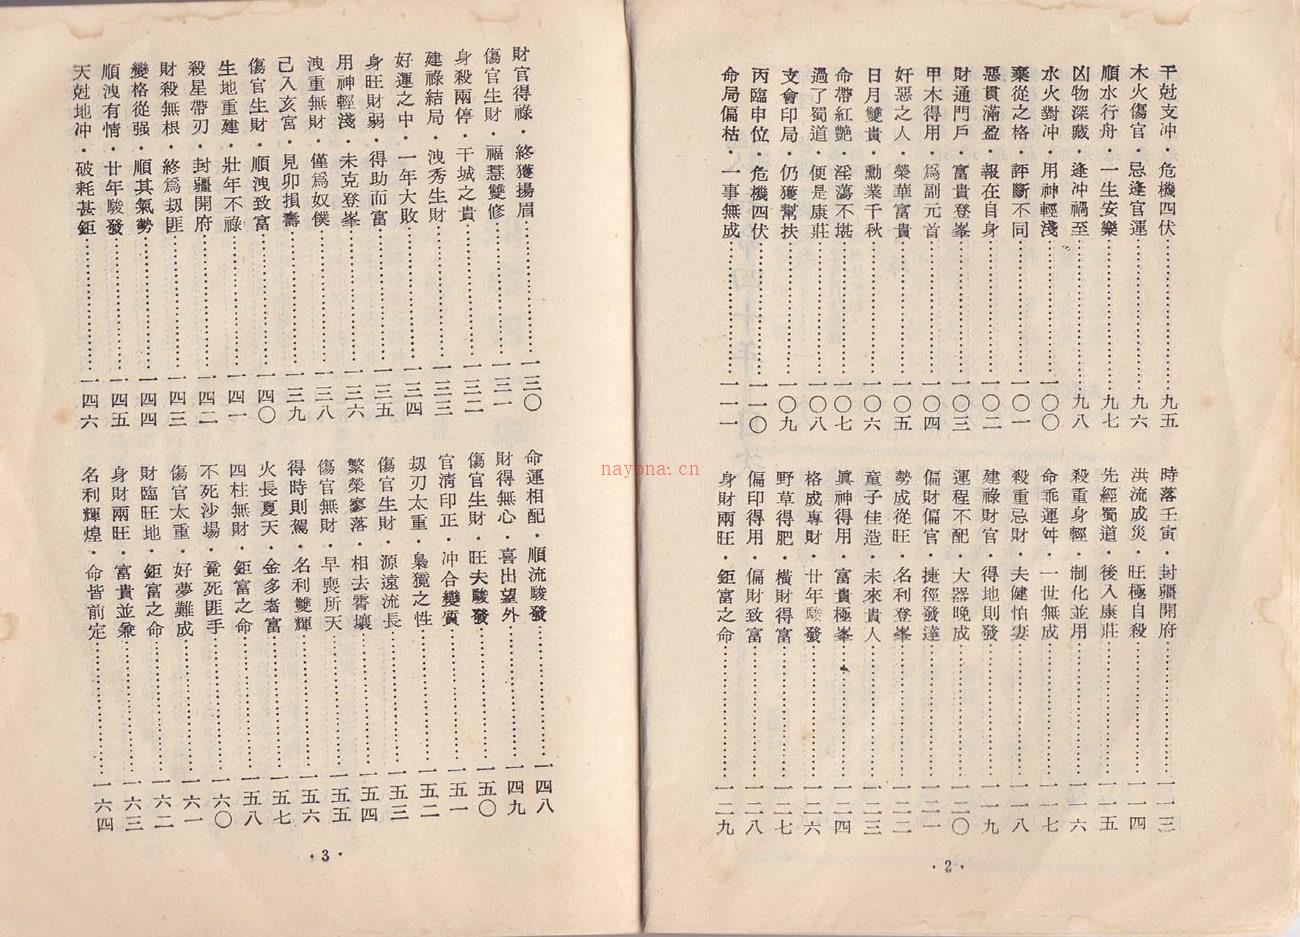 干尅支冲・危機四伏………九五
木火傷官・忌逢官運………九六
順水行舟・一生安樂………九七
凶物深藏・逢冲禍至………九八
水火對冲・用神輕淺………一〇〇
棄從之格・評斷不同………一〇一
惡貫滿盈・報在自身………一〇二
財通門戶・富貴登峯………一〇三
甲木得用・爲副元首………一〇四
奸惡之人・榮華富貴………一〇五
日月雙貴・勳業千秋………一〇六
命帶紅艷・淫蕩不堪………一〇七
過了蜀道・便是康莊………一〇八
支會印局・仍獲幫扶………一〇九
丙臨申位・危機四伏………一一〇
命局偏枯・一事無成………一一一
時落壬寅・封疆開府………一一三
洪流成災・旺極自殺………一一四
先經蜀道・後入康莊………一一五
殺重身輕・制化並用………一一六
命乖運舛・一世無成………一一七
殺重忌財・夫健怕妻………一一八
建祿財官・得地則發………一一九
運程不配・大器晚成………一二〇
偏財偏官・捷徑發達………一二一
勢成從旺・名利登峯………一二二
童子佳造・未來貴人………一二三
眞神得用・富貴極峯………一二四
格成專財・廿年駿發………一二六
野草得肥・橫財得富………一二七
偏印得用・偏財致富………一二八
身財兩旺・鉅富之命………一二九
・2・
財官得祿・終獲揚眉………一三〇
傷官生財・福慧雙修………一三一
身殺兩停・干城之貴………一三二
建祿結局・洩秀生財………一三三
好運之中・一年大敗………一三四
身旺財弱・得助而富………一三五
用神輕淺・未克登峯………一三六
洩重無財・僅爲奴僕………一三八
己入亥宮・見卯損壽………一三九
傷官生財・順洩致富………一四〇
生地重建・壯年不祿………一四一
殺星帶刃・封疆開府………一四二
財殺無根・終爲刼匪………一四三
變格從强・順其氣勢………一四四
順洩有情・廿年駿發………一四五
天尅地冲・破耗甚鉅………一四六
命運相配・順流駿發………一四八
財得無心・喜出望外………一四九
傷官生財・旺夫駿發………一五〇
官清印正・冲合變質………一五一
刼刃太重・梟獍之性………一五二
傷官生財・源遠流長………一五三
繁榮寥落・相去霄壤………一五四
傷官無財・早喪所天………一五五
得時則駕・名利雙輝………一五六
火長夏天・金多者富………一五七
四柱無財・鉅富之命………一五八
不死沙場・竟死匪手………一六〇
傷官太重・好夢難成………一六一
財臨旺地・鉅富之命………一六二
身財兩旺・富貴並兼………一六三
名利輝煌・命皆前定………一六四
・3・
nayona.cn